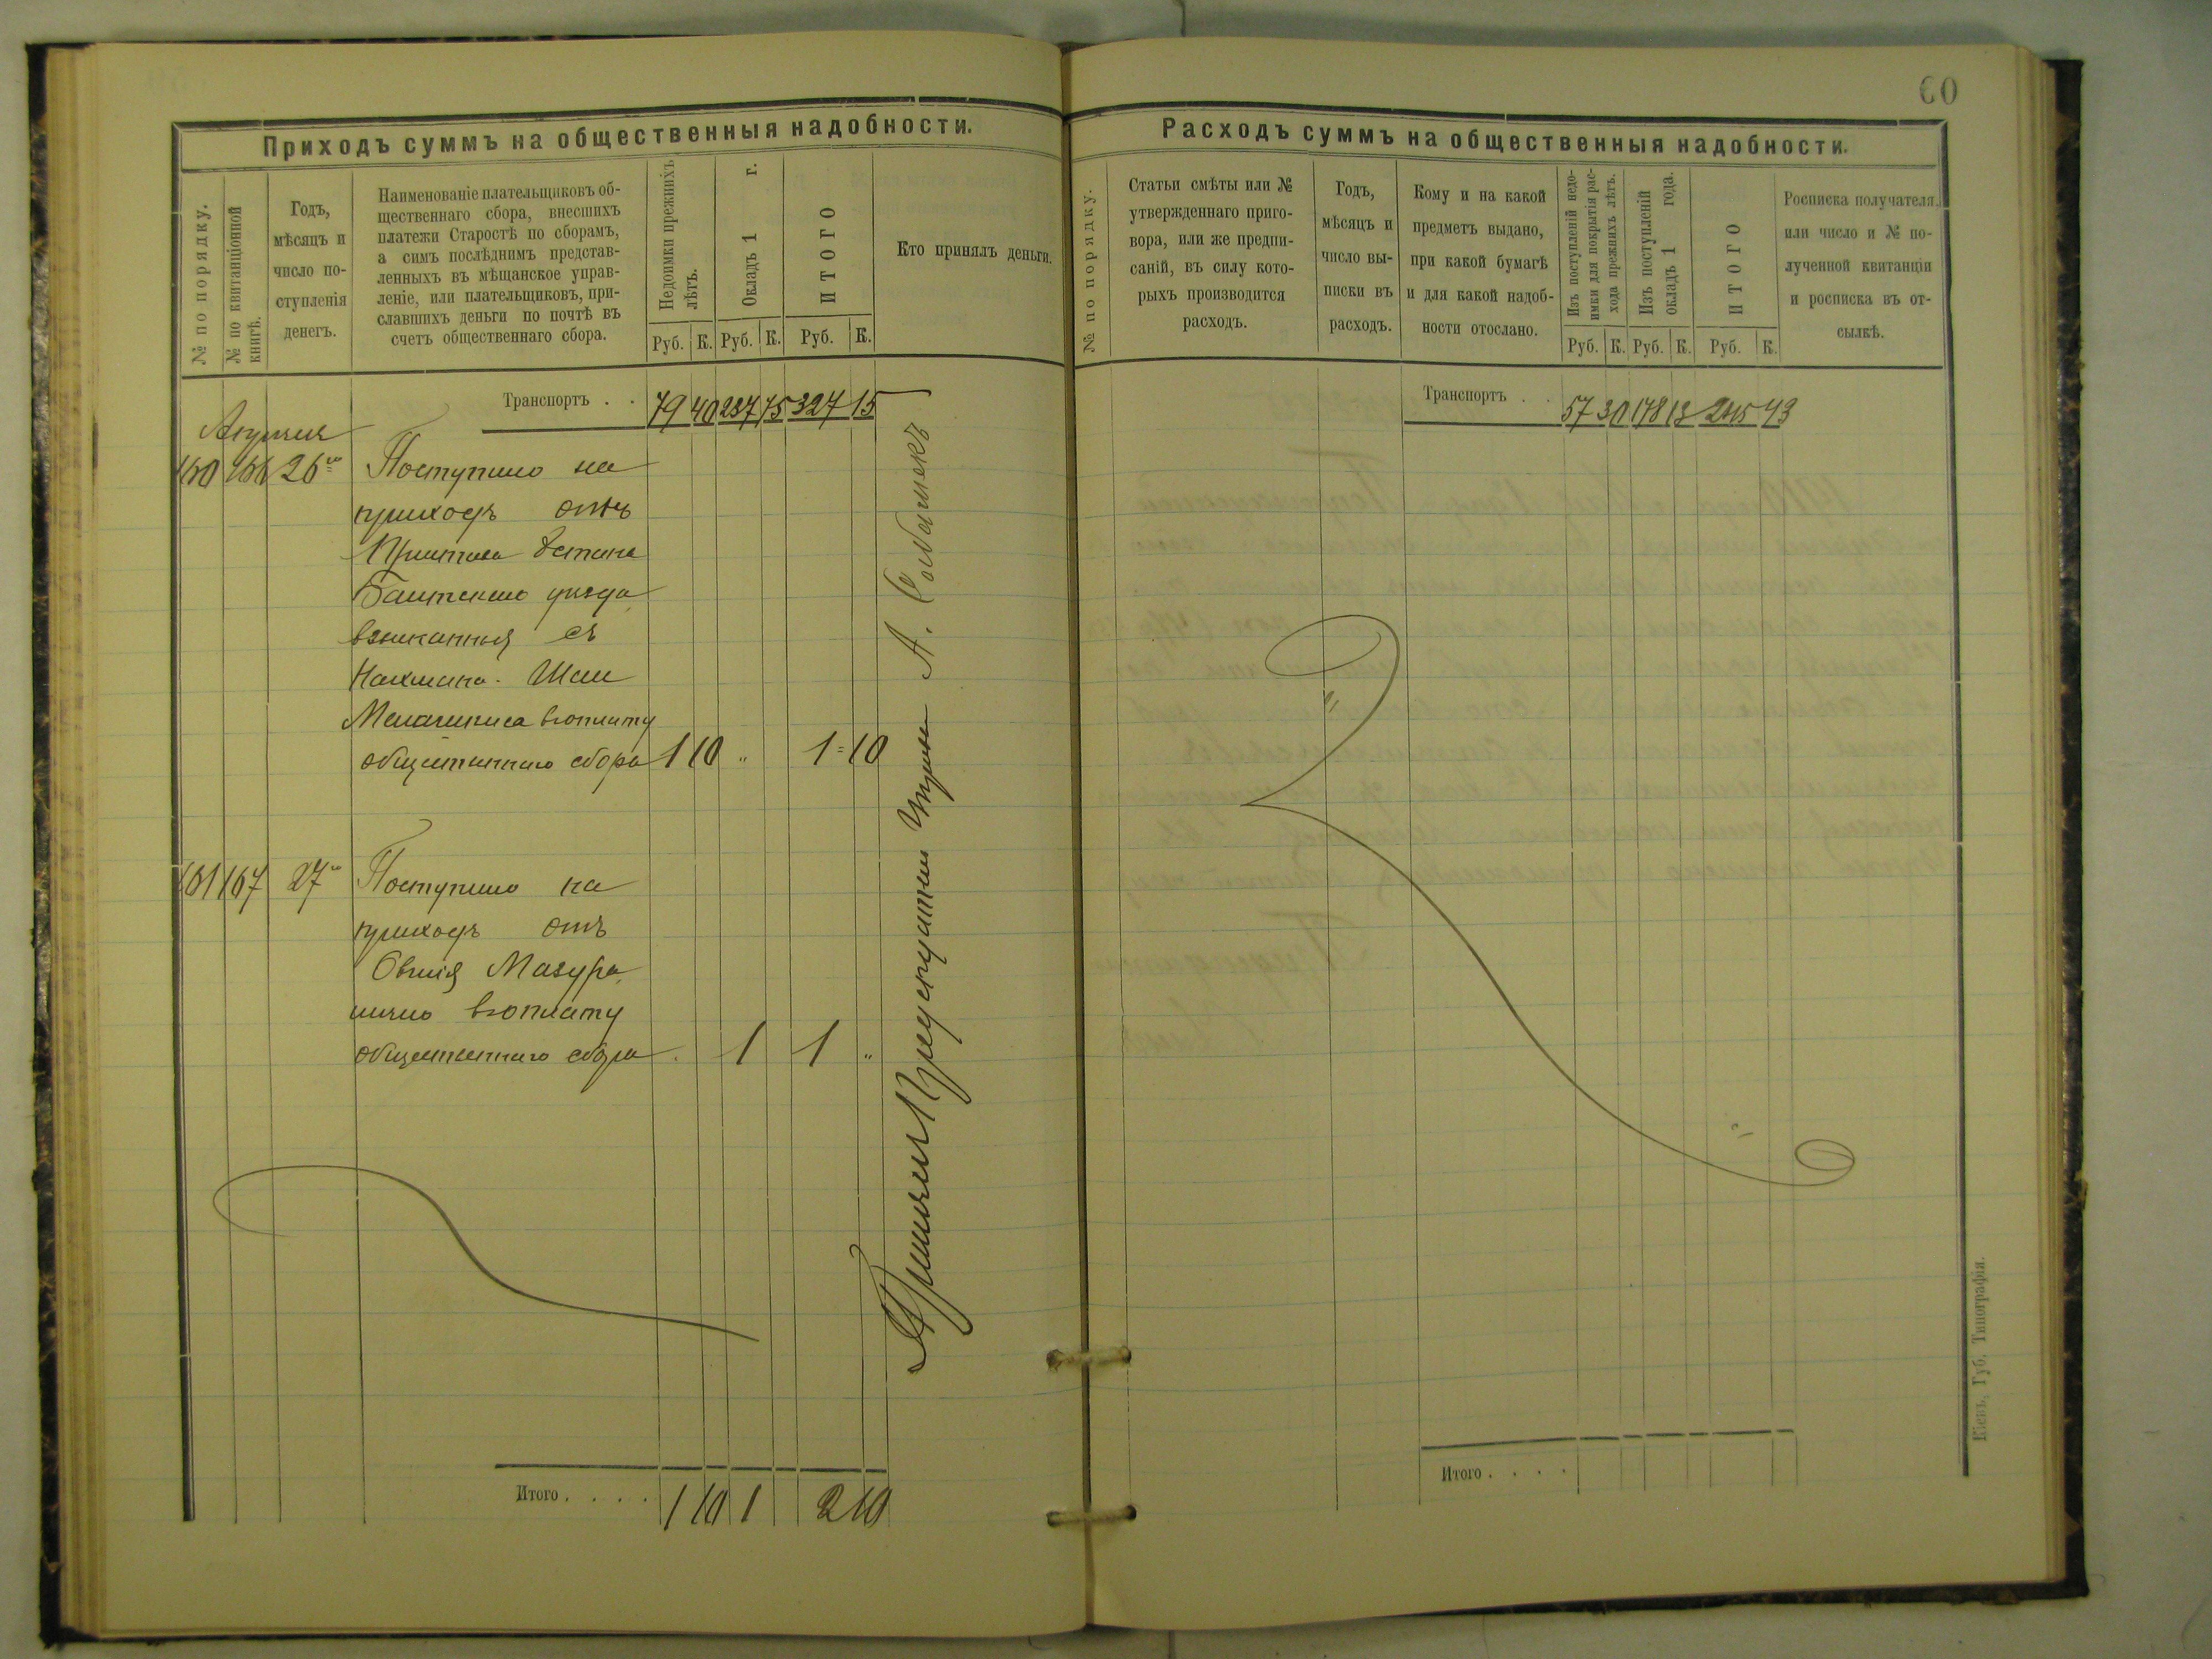 60
Приходъ суммъ на общественныя надобности.
№ по порядку.
№ по квитанціонной
книгѣ.
Годъ,
мѣсяцъ и
число по-
ступленія
денегъ.
Наименованіе плательщиковъ об-
щественнаго сбора, внесшихъ
платежи Старостѣ по сборамъ,
а симъ послѣднимъ представ-
ленныхъ въ мѣщанское управ-
леніе, или плательщиковъ, при-
славшихъ деньги по почтѣ въ
счетъ общественнаго сбора.
Недоимки прежнихъ
лѣтъ.
Окладъ 1 г.
ИТОГО
Кто принялъ деньги.
Руб. К. Руб. К. Руб. К.
Транспортъ . . 79 40 237 75 327 15
Апреля
160 166 26 Поступило на
приходъ отъ
Пристава 2 стана
уѣзда
взысканныя съ
Нахмана - Шаи
вуплату
общественнаго сбора 1 10 " 1 = 10
161 167 27 Поступило на
приходъ отъ
Овшія Мазура,
лично вуплату
общественнаго сбора . 1 1 "
Принялъ Предсѣдатель Управы А.
Итого . . . . 1 10 1 2 10
Расходъ суммъ на общественныя надобности.
№ по порядку.
Статьи смѣты или №
утвержденнаго приго-
вора, или же предпи-
саній, въ силу кото-
рыхъ производится
расходъ.
Годъ,
мѣсяцъ и
число вы-
писки въ
расходъ.
Кому и на какой
предметъ выдано,
при какой бумагѣ
и для какой надоб-
ности отослано.
Изъ поступленій недо-
имки для покрытія рас-
хода прежнихъ лѣтъ.
Изъ поступленій
окладъ 1 года.
ИТОГО
Росписка получателя,
или число и № по-
лученной квитанціи
и росписка въ от-
сылкѣ.
Руб. К. Руб. К. Руб. К.
Транспортъ . . 57 30 178 13 43
Итого . . . .
Кіевъ, Губ. Типографія.